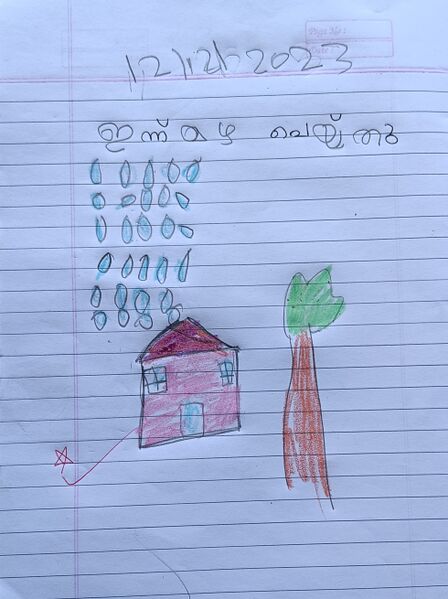 Page No :
Date :
12/12/2023
ഇന്ന് മഴ പെയ്തു